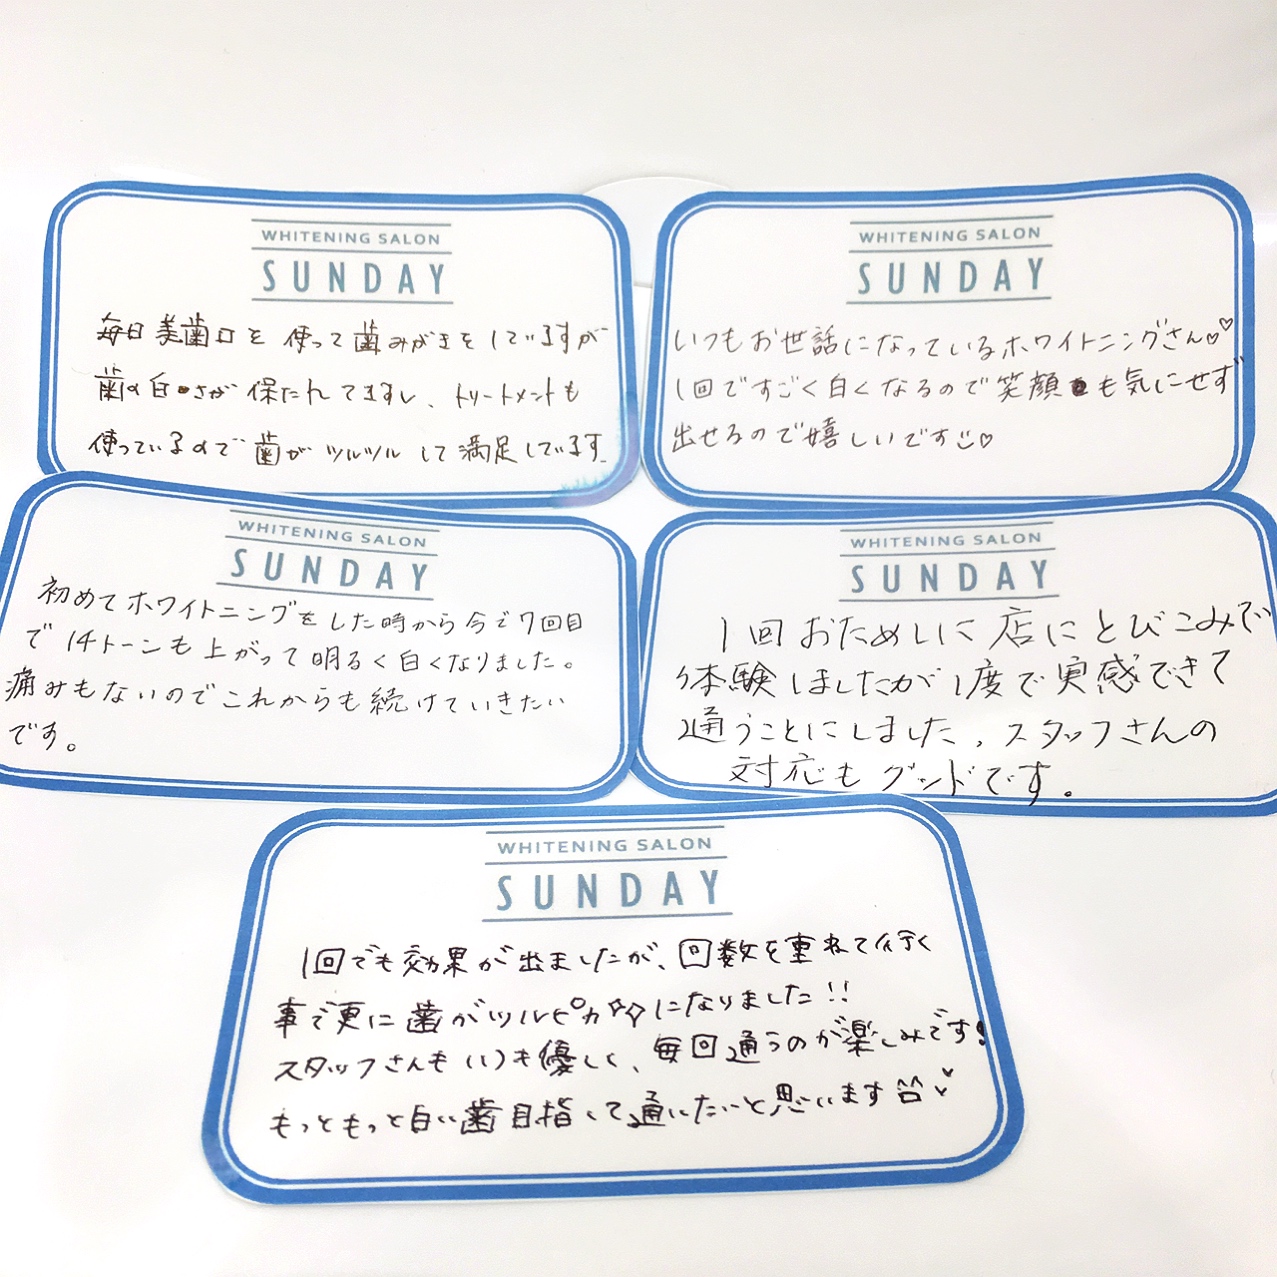 WHITENING SALON
SUNDAY
毎日美歯口を使って歯みがきをしていますが
歯の白さが保たれてますし、トリートメントも
使っているので歯がツルツルして満足しています。
WHITENING SALON
SUNDAY
いつもお世話になっているホワイトニングさん♡♡
1回ですごく白くなるので笑顔も気にせず
出せるので嬉しいです♡
WHITENING SALON
SUNDAY
初めてホワイトニングをした時から今で7回目
で14トーンも上がって明るく白くなりました。
痛みもないのでこれからも続けていきたい
です。
WHITENING SALON
SUNDAY
1回おためしに店にとびこみで
体験しましたが1度で実感できて
通うことにしました。スタッフさんの
対応もグッドです。
WHITENING SALON
SUNDAY
1回でも効果が出ましたが、回数を重ねて行く
事で更に歯がツルピカになりました!!
スタッフさんもいつも優しく、毎回通うのが楽しみです!
もっともっと白い歯目指して通いたいと思います